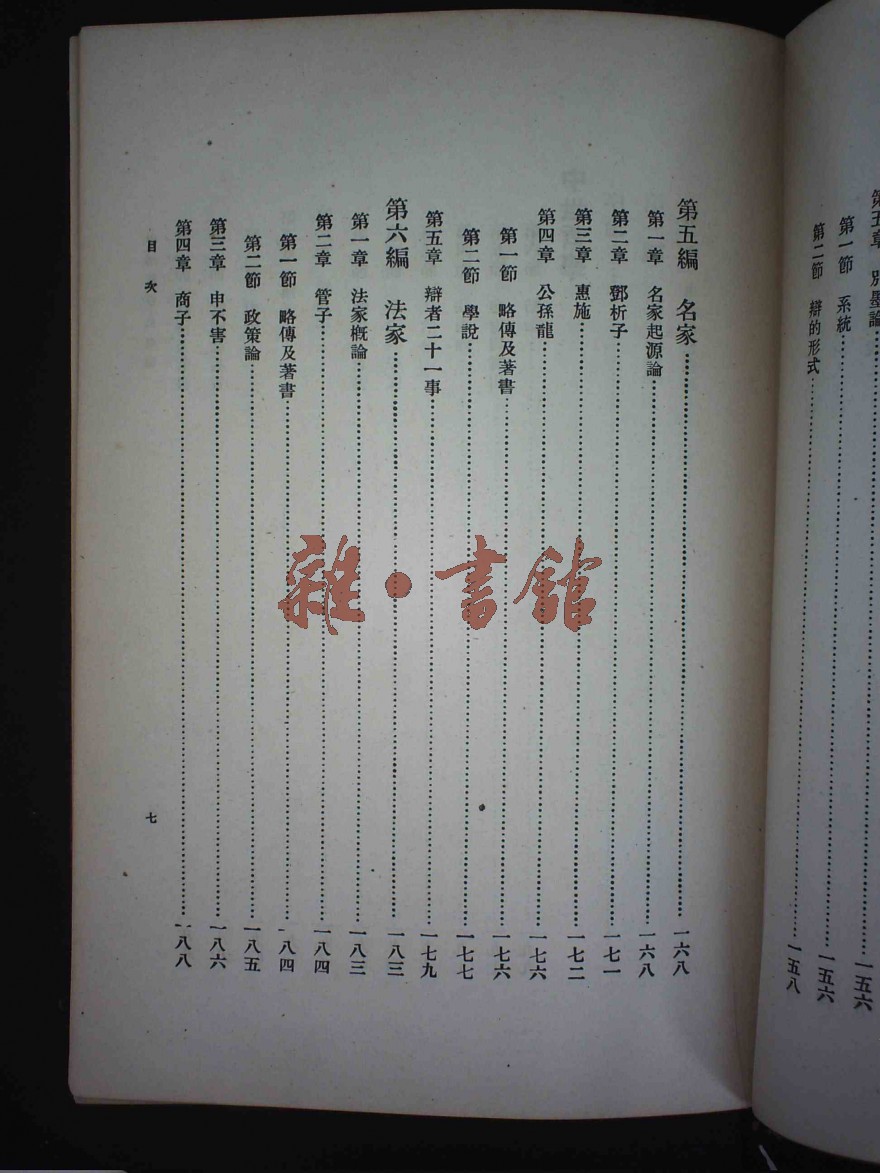 第五章 別墨論……一五六
第一節 系統……一五六
第二節 辯的形式……一五八
第五編 名家……一六八
第一章 名家起源論……一六八
第二章 鄧析子……一七一
第三章 惠施……一七二
第四章 公孫龍……一七六
第一節 略傳及著書……一七六
第二節 學說……一七七
第五章 辯者二十一事……一七九
第六編 法家……一八三
第一章 法家概論……一八三
第二章 管子……一八四
第一節 略傳及著書……一八四
第二節 政策論……一八五
第三章 申不害……一八六
第四章 商子……一八八
目次 七
雜·書館